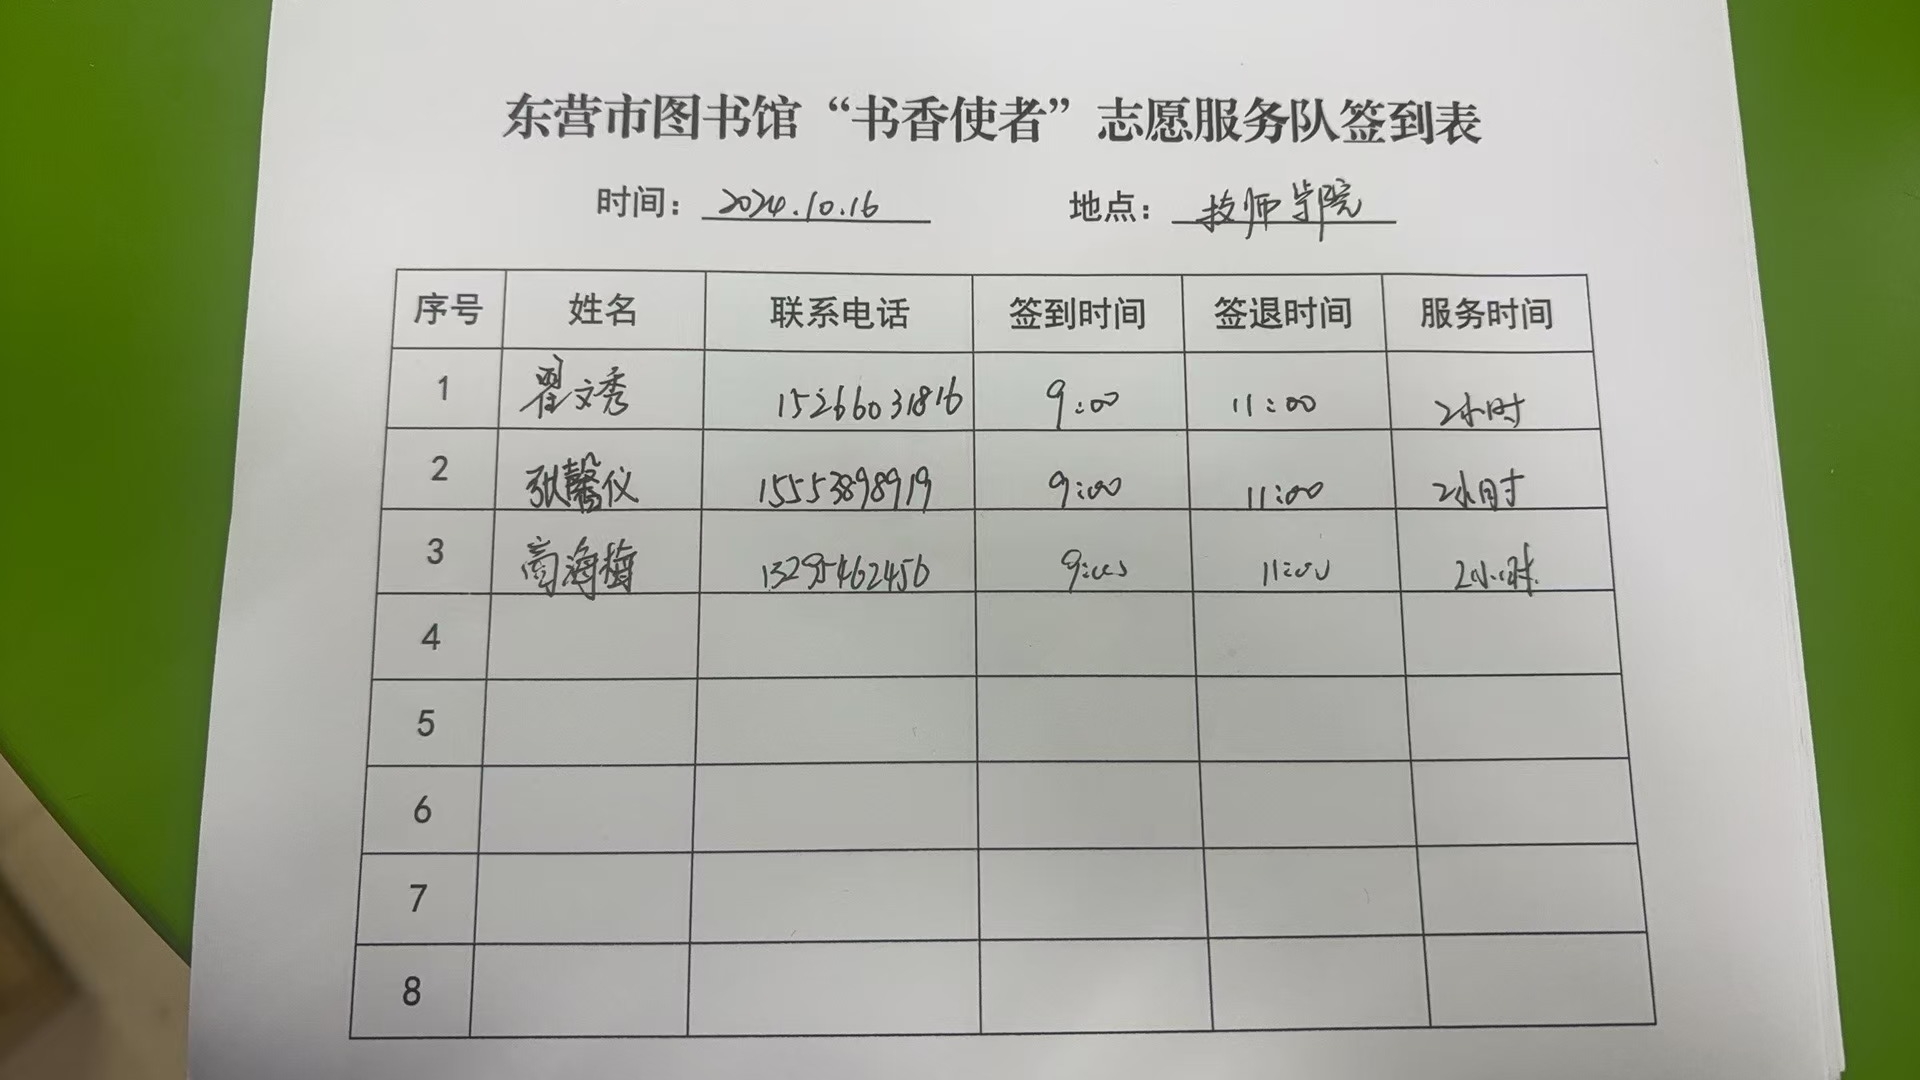 东营市图书馆“书香使者”志愿服务队签到表
时间：2024.10.16 地点：技师学院
序号 姓名 联系电话 签到时间 签退时间 服务时间
1 翟文秀 15266031816 9:00 11:00 2小时
2 张馨仪 15553898919 9:00 11:00 2小时
3 海梅 13295462456 9:00 11:00 2小时
4
5
6
7
8